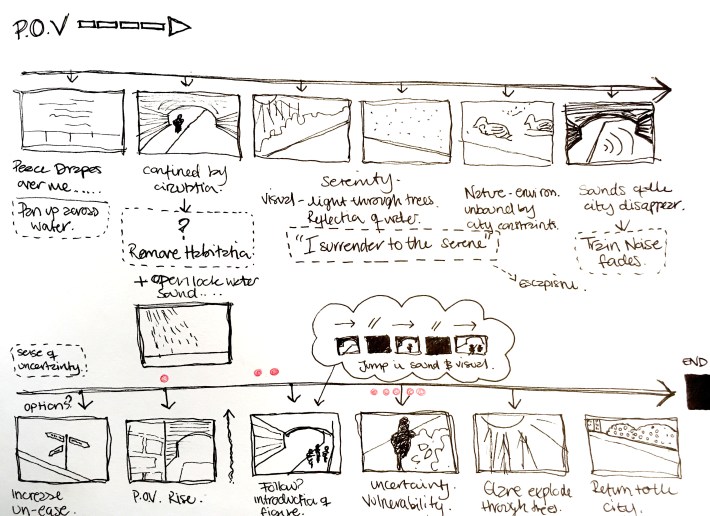 P.O.V
Peace Drapes
over me......
Pan up across
water.
confined by
?
Remove
+ open lock water
sound....
Serenity-
visual - light through trees.
Reflection of water.
"I surrender to the serene"
Escapism.
Nature-environ.
unbound by
city constraints.
Sounds of the
city disappear.
Train Noise
fades.
sense of
uncertainty.
Jump in sound & visual.
END
options?
Increase
un-ease.
P.O.V. Rise.
Follow?
introduction of
figure.
uncertainty.
Vulnerability.
Glare explode
through trees.
Return to the
city.